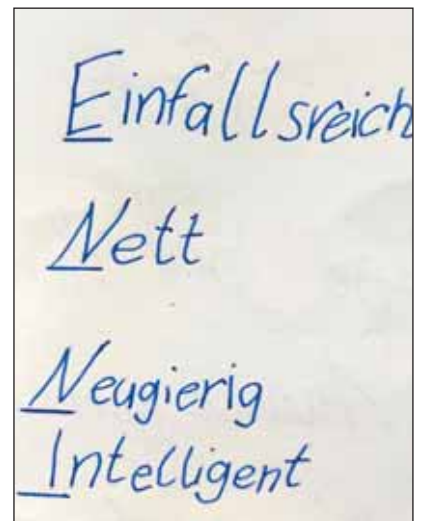 Einfallsreich
Nett
Neugierig
Intelligent